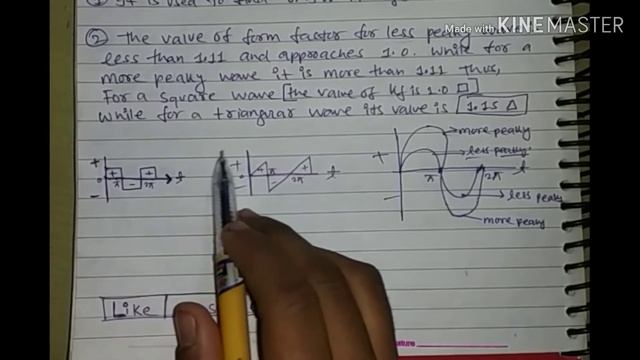 Made with KINEMASTER
② The value of form factor for less peaky
less than 1.11 and approaches 1.0. while for a
more peaky wave it is more than 1.11 Thus,
For a square wave the value of kf is 1.0
while for a triangular wave its value is 1.15
+ + + 0 π - 2π t -
+ + π + 2π t
+ π 2π t -
more peaky
less peaky
less peaky
more peaky
Like